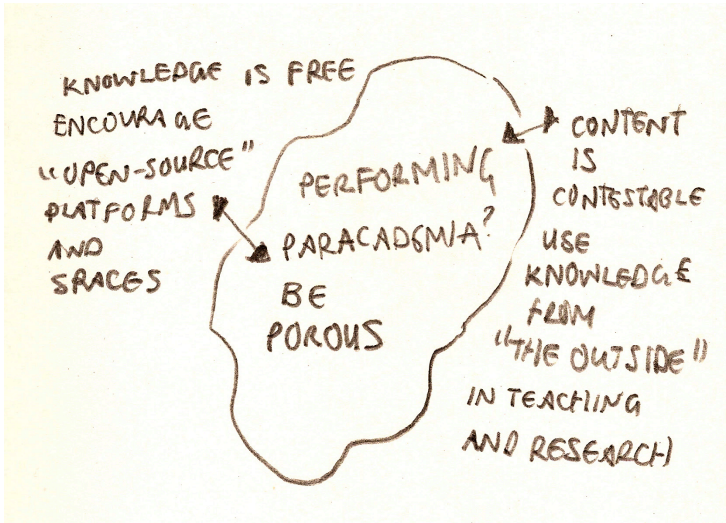 KNOWLEDGE IS FREE
ENCOURAGE
"OPEN-SOURCE"
PLATFORMS
AND
SPACES
PERFORMING
PARACADEMIA?
BE
POROUS
CONTENT
IS
CONTESTABLE
USE
KNOWLEDGE
FROM
"THE OUTSIDE"
IN TEACHING
AND RESEARCH